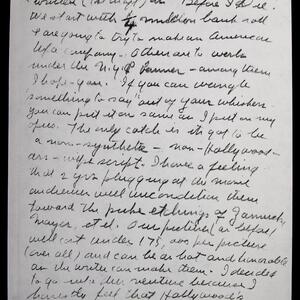 before I die.
We start with ¼ million bank roll
& are going to try to make an American
Ufa company. Others are to work
under the banner - among them
I hope - you. If you can wrangle
something to say out of your whiskers
you can put it on same as I put on my
The only catch is it's got to be
a non-synthetic - non-Hollywood-
script. I have a feeling
that 2 yrs plugging at the movie
audience will uncondition them
toward the puke etchings of Zanuck,
Mayer, et al. Our pictures
will cost under 175,000 per picture
(over all) and can be as hot and honorable
as the writer can make them. I decided
to go into her venture because I
honestly feel that Hollywood's